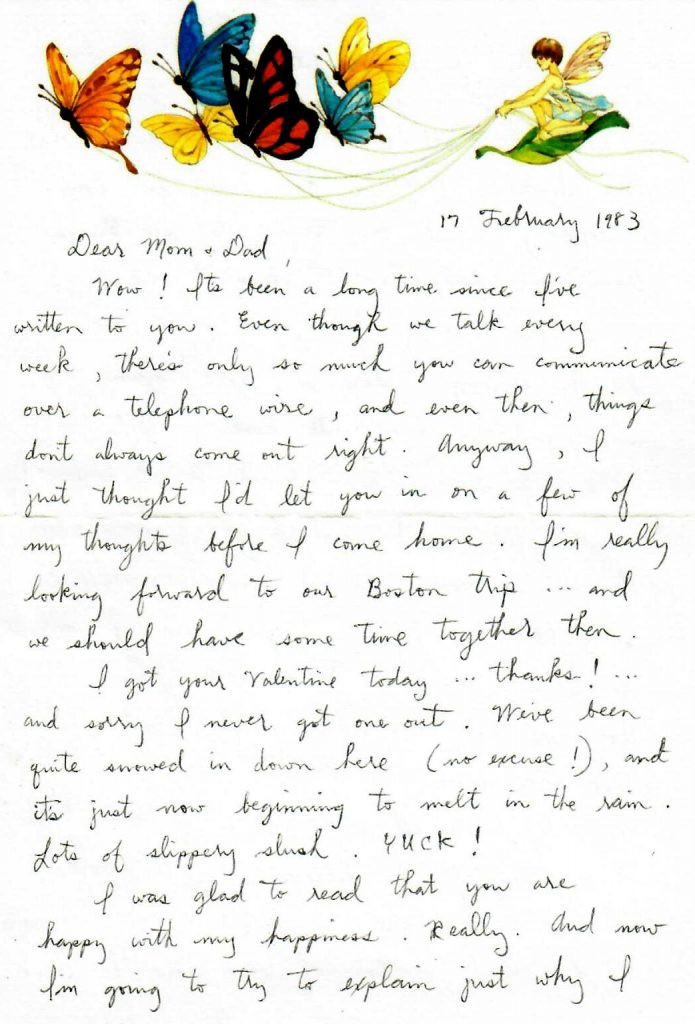 17 February 1983
Dear Mom & Dad,
Wow! Its been a long time since I've
written to you. Even though we talk every
week, there's only so much you can communicate
over a telephone wire, and even then, things
don't always come out right. Anyway, I
just thought I'd let you in on a few of
my thoughts before I come home. I'm really
looking forward to our Boston trip ... and
we should have some time together then.
I got your Valentine today ... thanks! ...
and sorry I never got one out. We've been
quite snowed in down here (no excuse!), and
it's just now beginning to melt in the rain.
Lots of slippery slush. YUCK!
I was glad to read that you are
happy with my happiness. Really. And now
I'm going to try to explain just why I